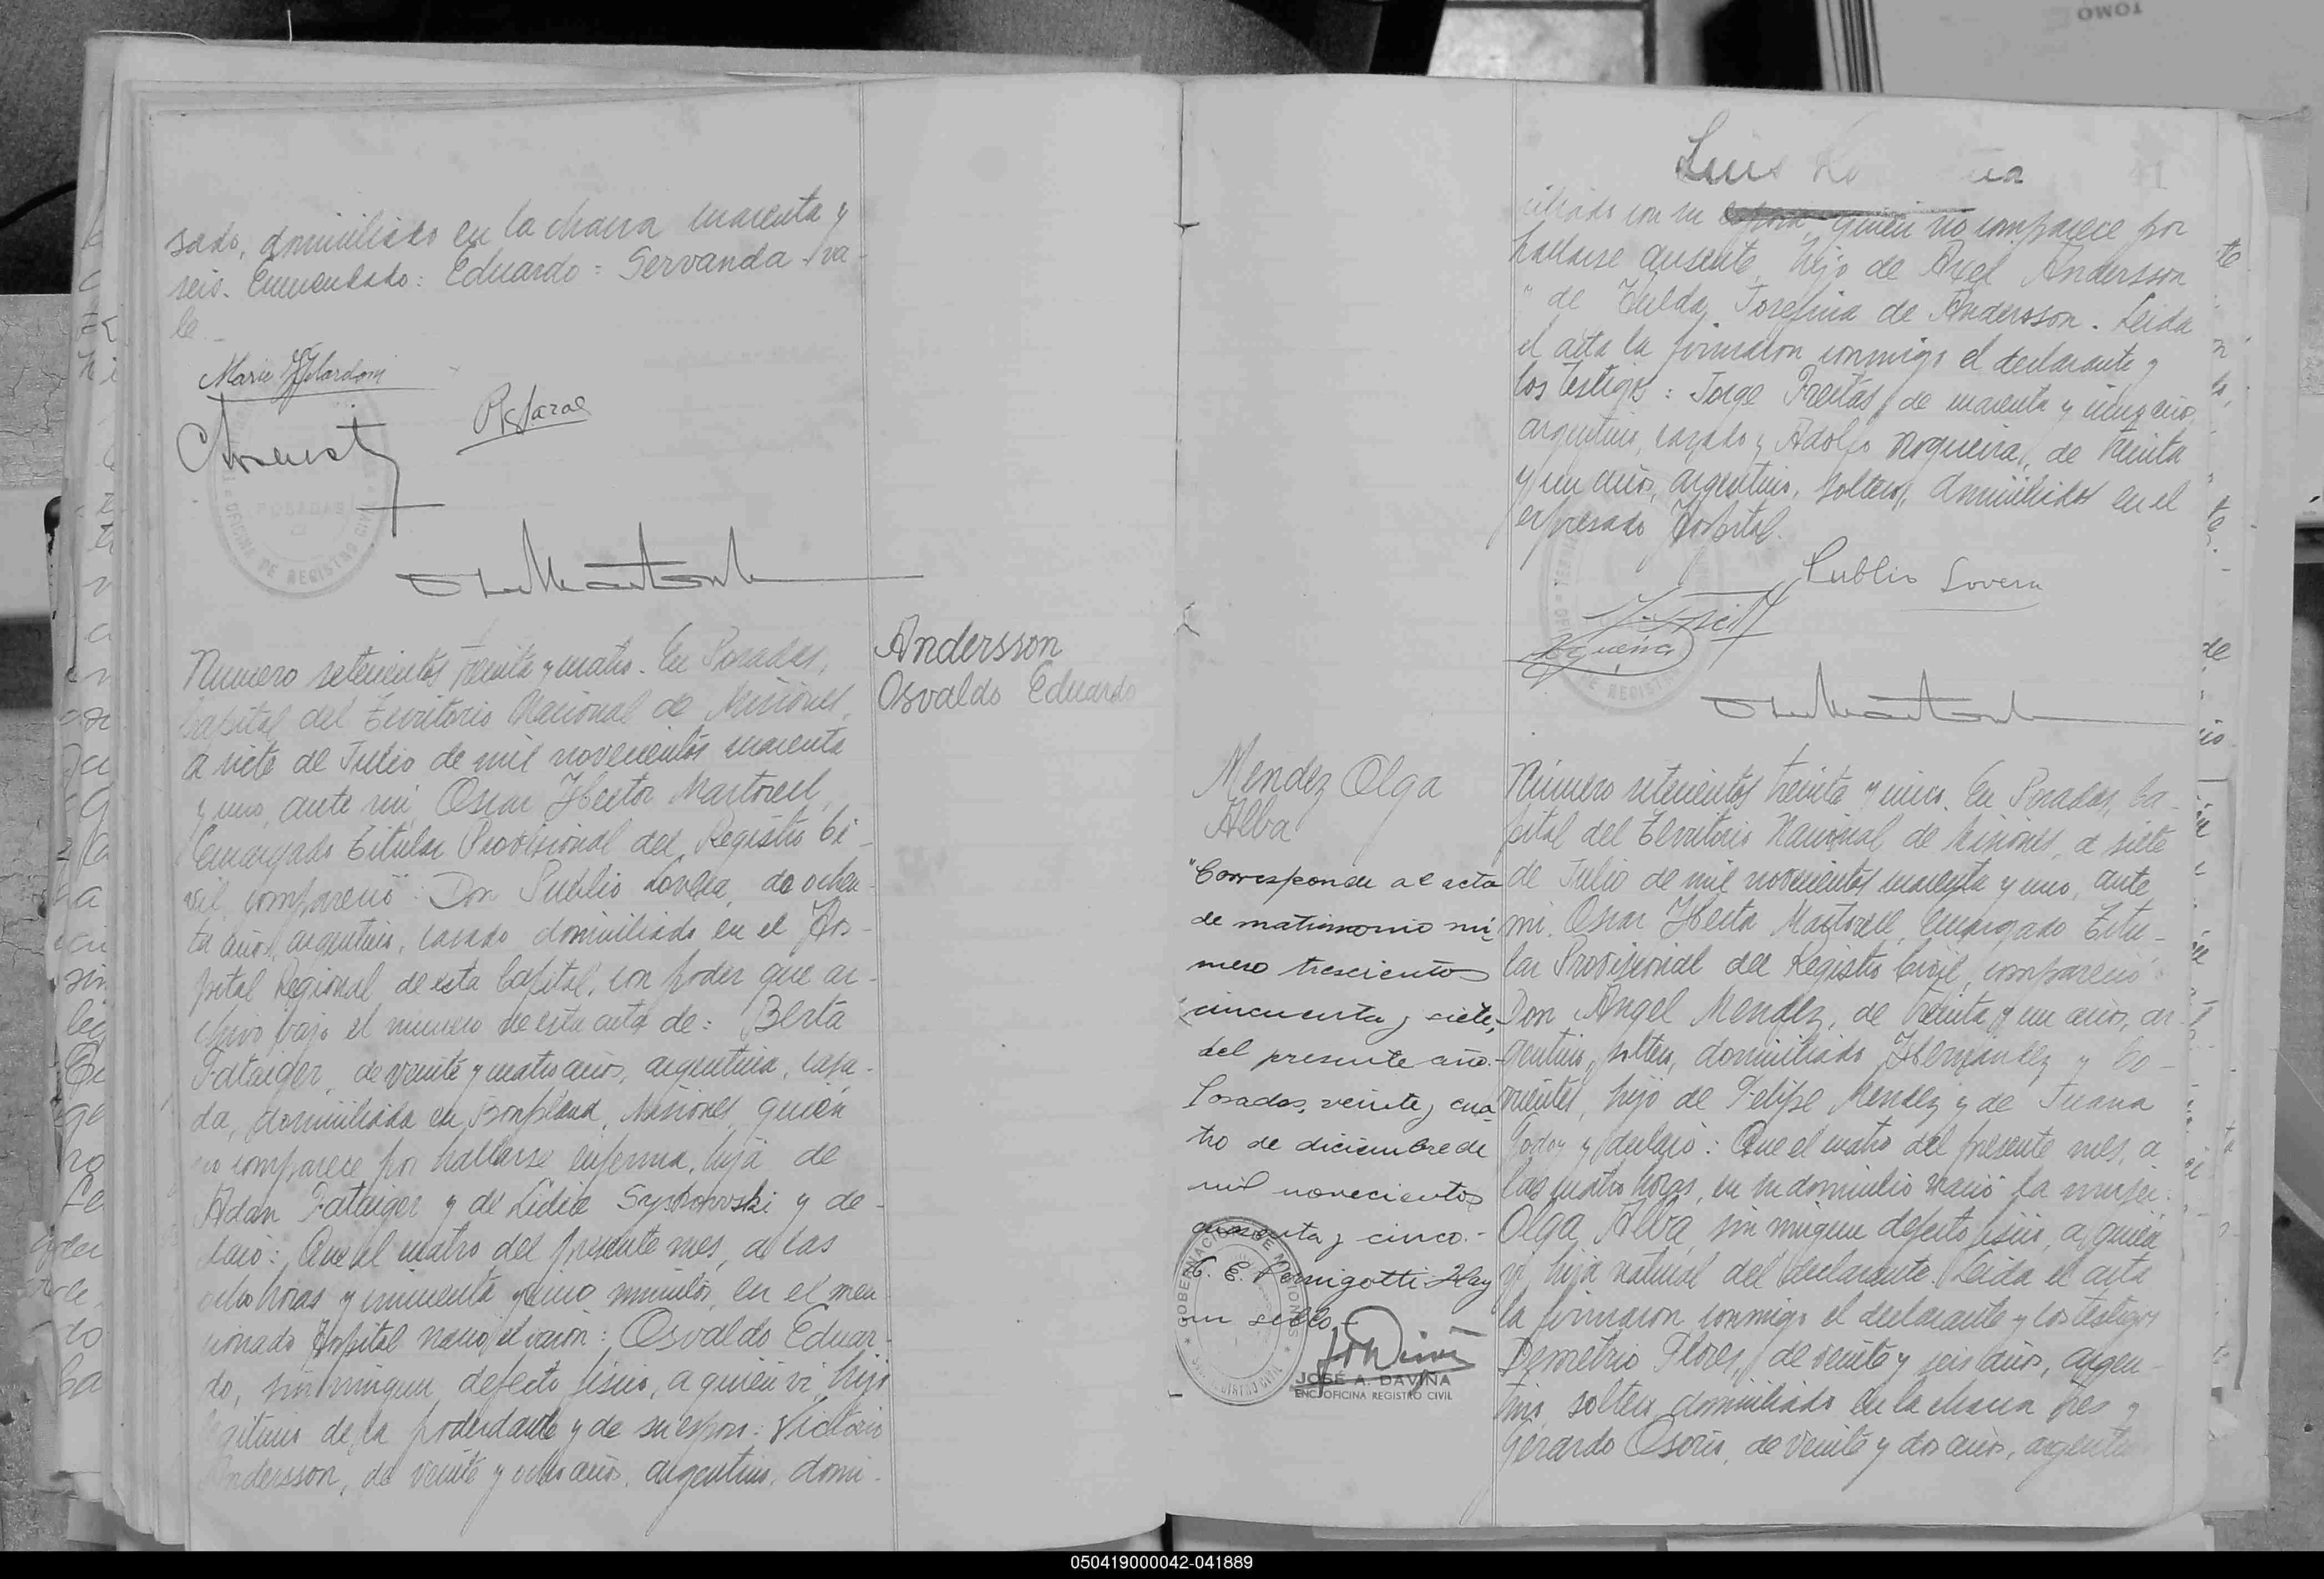 TOMO
sado, domiciliado en la chacra cuarenta y
seis. Enmendado: Eduardo = Servanda = va-
le.
POSADAS
OFICINA DE REGISTRO CIVIL
Andersson
Osvaldo Eduardo
Numero setecientos treinta y cuatro. En Posadas,
Capital del Territorio Nacional de Misiones,
a siete de Julio de mil novecientos cuarenta
y uno, ante mi, Oscar Hector Martorell,
Encargado Titular Provisional del Registro Ci-
vil, compareció: Don Publio Lovera, de ochen-
ta años, argentino, casado, domiciliado en el Hos-
pital Regional de esta Capital, con poder que ar-
chivo bajo el numero de esta acta de: Berta
Fataiger, de veinte y cuatro años, argentina, casa-
da, domiciliada en Bonpland, Misiones, quien
no comparece por hallarse enferma, hija de
Adan Fataiger y de Lidia y de-
claró: Que el cuatro del presente mes, a las
ocho horas y cincuenta y cinco minutos, en el men-
cionado Hospital nació el varon: Osvaldo Eduar-
do, sin ningun defecto fisico, a quien vi, hijo
legitimo de la poderdante y de su esposo: Victorio
Andersson, de veinte y ocho años, argentino, domi-
Luis
41
ciliado con su esposa, quien no comparece por
hallarse ausente, hijo de Axel Andersson
y de Hulda Josefina de Andersson. Leida
el acta la firmaron conmigo el declarante y
los testigos: Jorge Freitas, de cuarenta y cinco años,
argentino, casado y Adolfo Nogueira, de treinta
y un años, argentino, soltero, domiciliados en el
expresado Hospital.
Publio Lovera
Mendez Olga
Alba
"Corresponde al acta
de matrimonio nú-
mero trescientos
cincuenta y siete,
del presente año.-
Posadas, veinte y cua-
tro de diciembre de
mil novecientos
cuarenta y cinco.-
C. E. Pernigotti Hay
un sello.-
GOBERNACION DE MISIONES
JOSÉ A. DAVIÑA
ENC. OFICINA REGISTRO CIVIL
Número setecientos treinta y cinco. En Posadas, Ca-
pital del Territorio Nacional de Misiones, a siete
de Julio de mil novecientos cuarenta y uno, ante
mi, Oscar Hector Martorell, Encargado Titu-
lar Provisional del Registro Civil, compareció:
Don Angel Mendez, de treinta y un años, ar-
gentino, soltero, domiciliado Hernandez y Co-
rrientes, hijo de Felipe Mendez y de Juana
Godoy y declaró: Que el cuatro del presente mes, a
las cuatro horas, en su domicilio nació la mujer:
Olga Alba, sin ningun defecto fisico, a quien
vi, hija natural del declarante. Leida el acta
la firmaron conmigo el declarante y los testigos
Demetrio Flores, de veinte y seis años, argen-
tino, soltero, domiciliado en la chacra tres y
Gerardo Osorio, de veinte y dos años, argenti
050419000042-041889